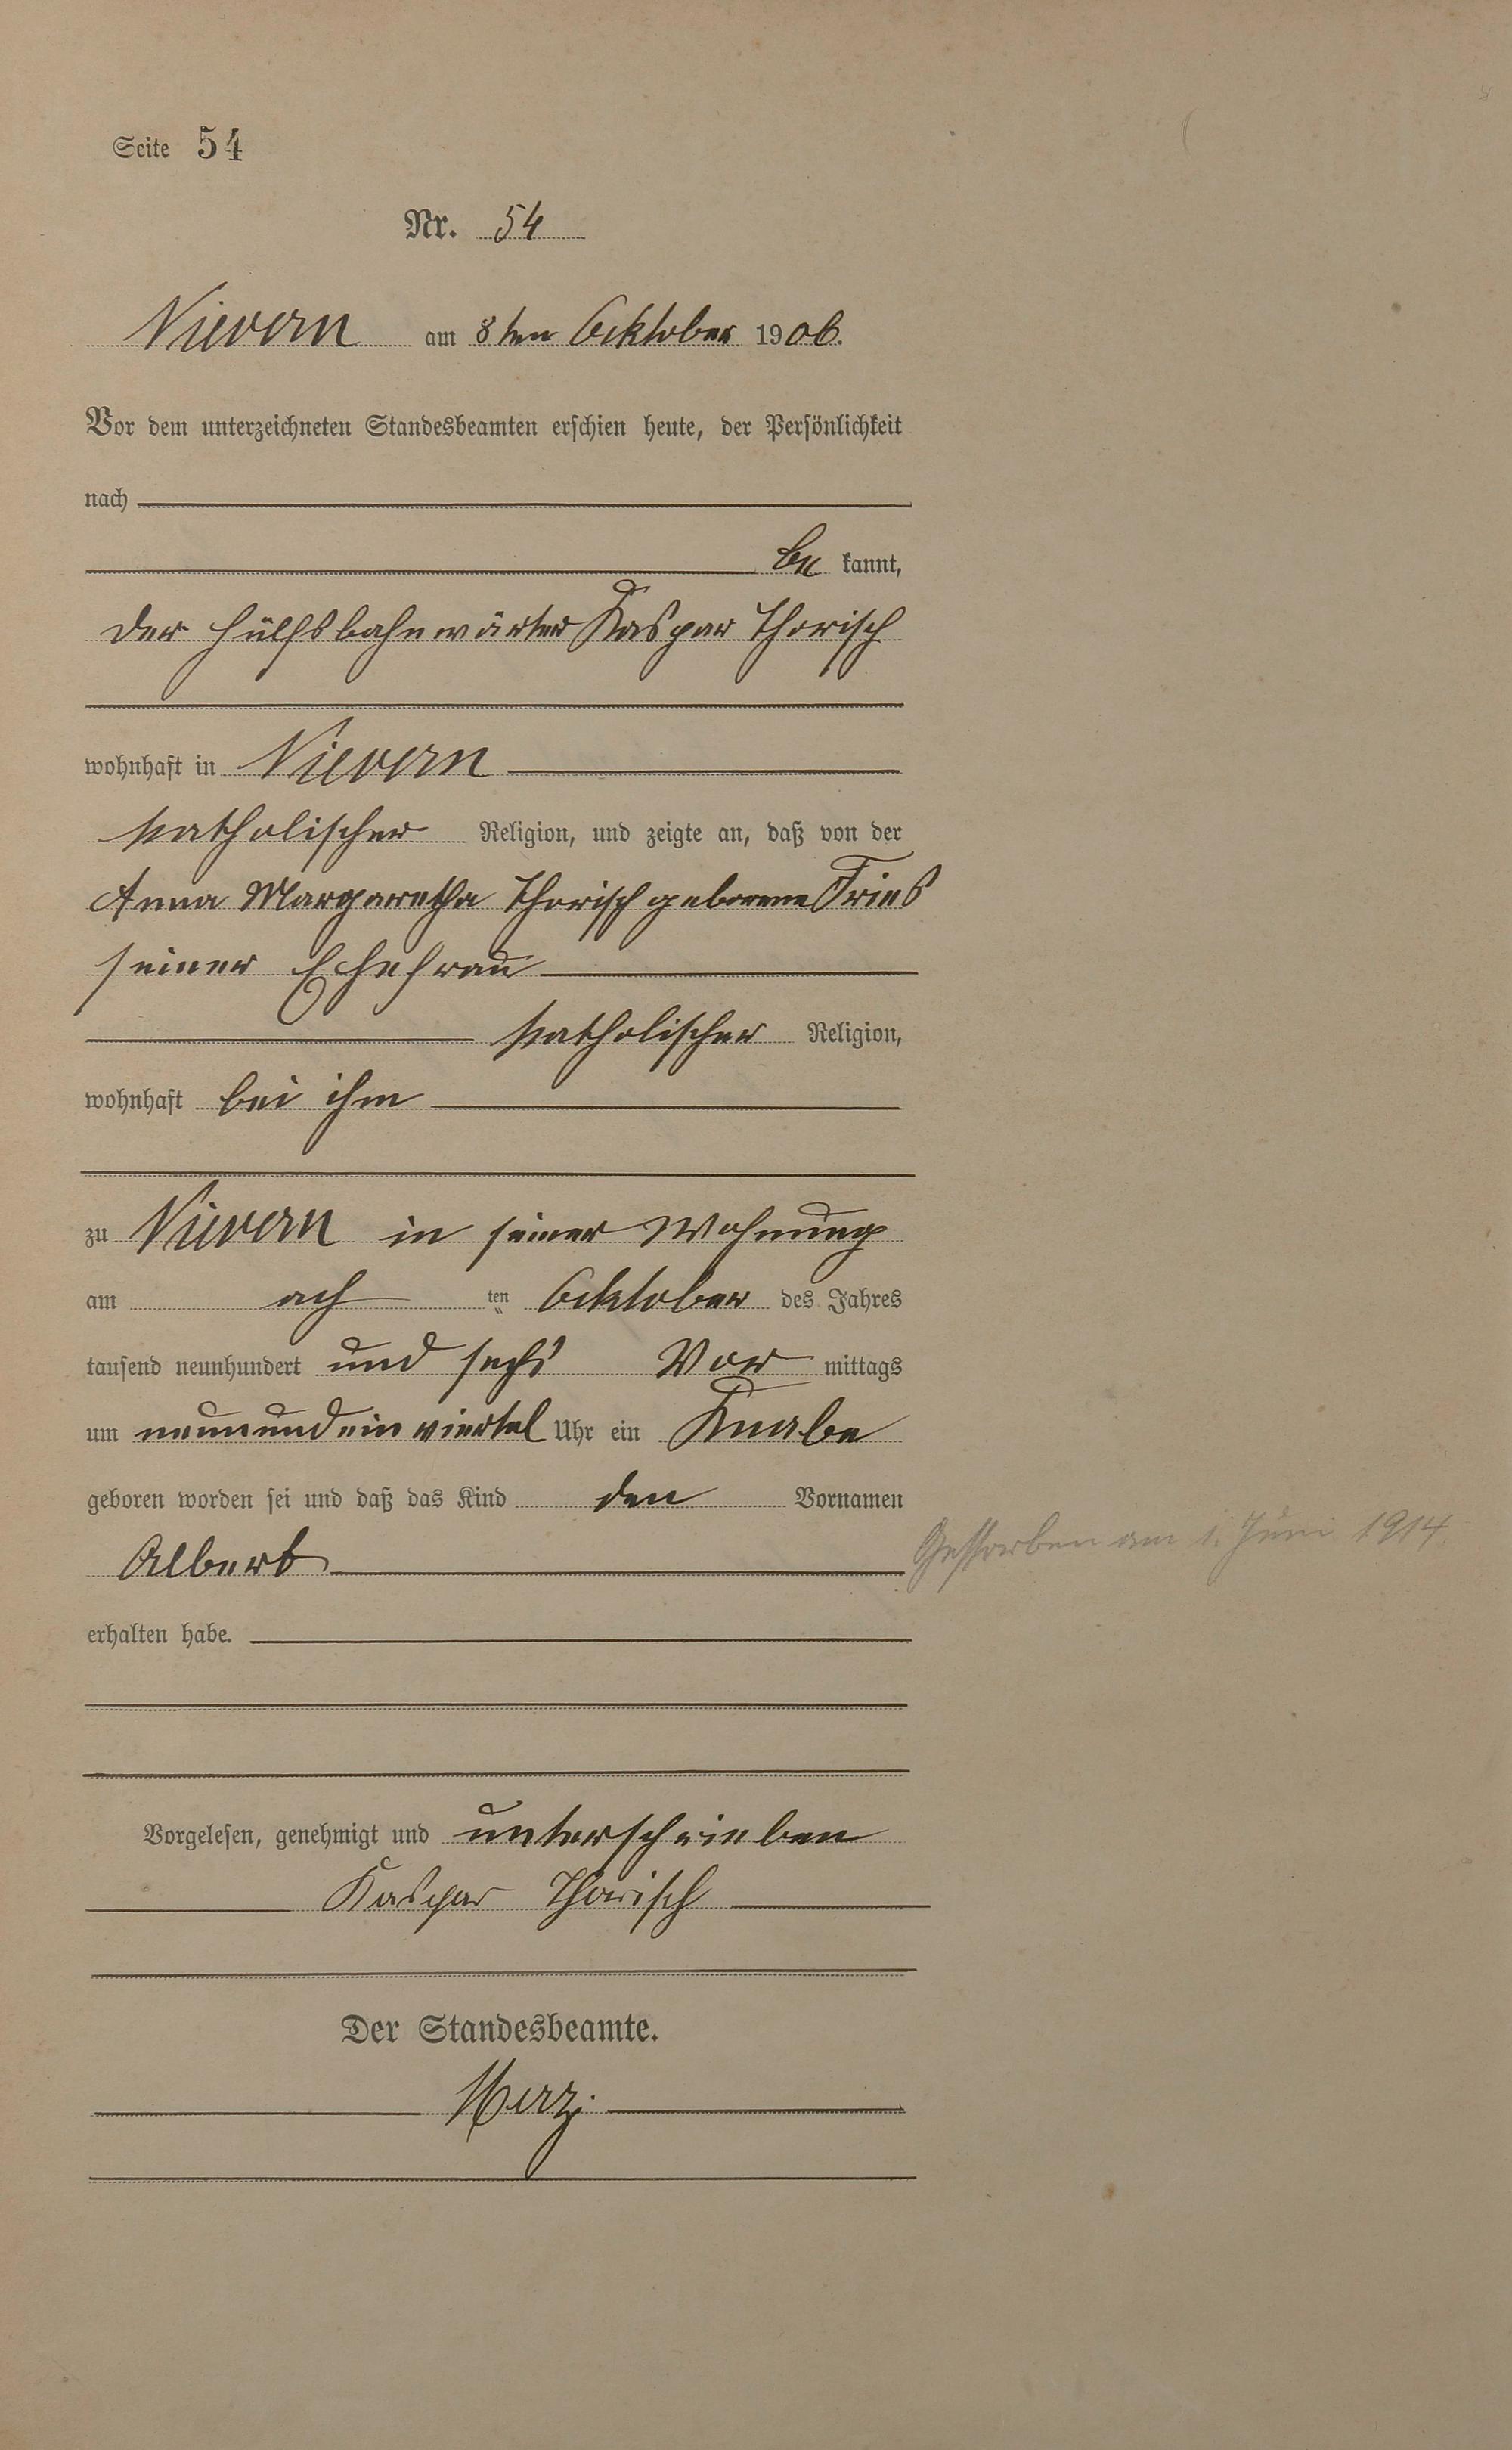 Seite 54
Nr. 54
Nievern am 8ten Ocktober 1906.
Vor dem unterzeichneten Standesbeamten erschien heute, der Persönlichkeit
nach
be kannt,
der Hülfsbahnwärter Kaspar Thorisch
wohnhaft in Nievern
katholischer Religion, und zeigte an, daß von der
Anna Margaretha Thorisch geborene Fries
seiner Ehefrau
katholischer Religion,
wohnhaft bei ihm
zu Nievern in seiner Wohnung
am ach ten Ocktober des Jahres
tausend neunhundert und sechs Vor mittags
um neunundeinviertel Uhr ein Knabe
geboren worden sei und daß das Kind den Vornamen
Albert
Gestorben am 1. Juni 1914.
erhalten habe.
Vorgelesen, genehmigt und unterschrieben
Kaspar Thorisch
Der Standesbeamte.
Merz